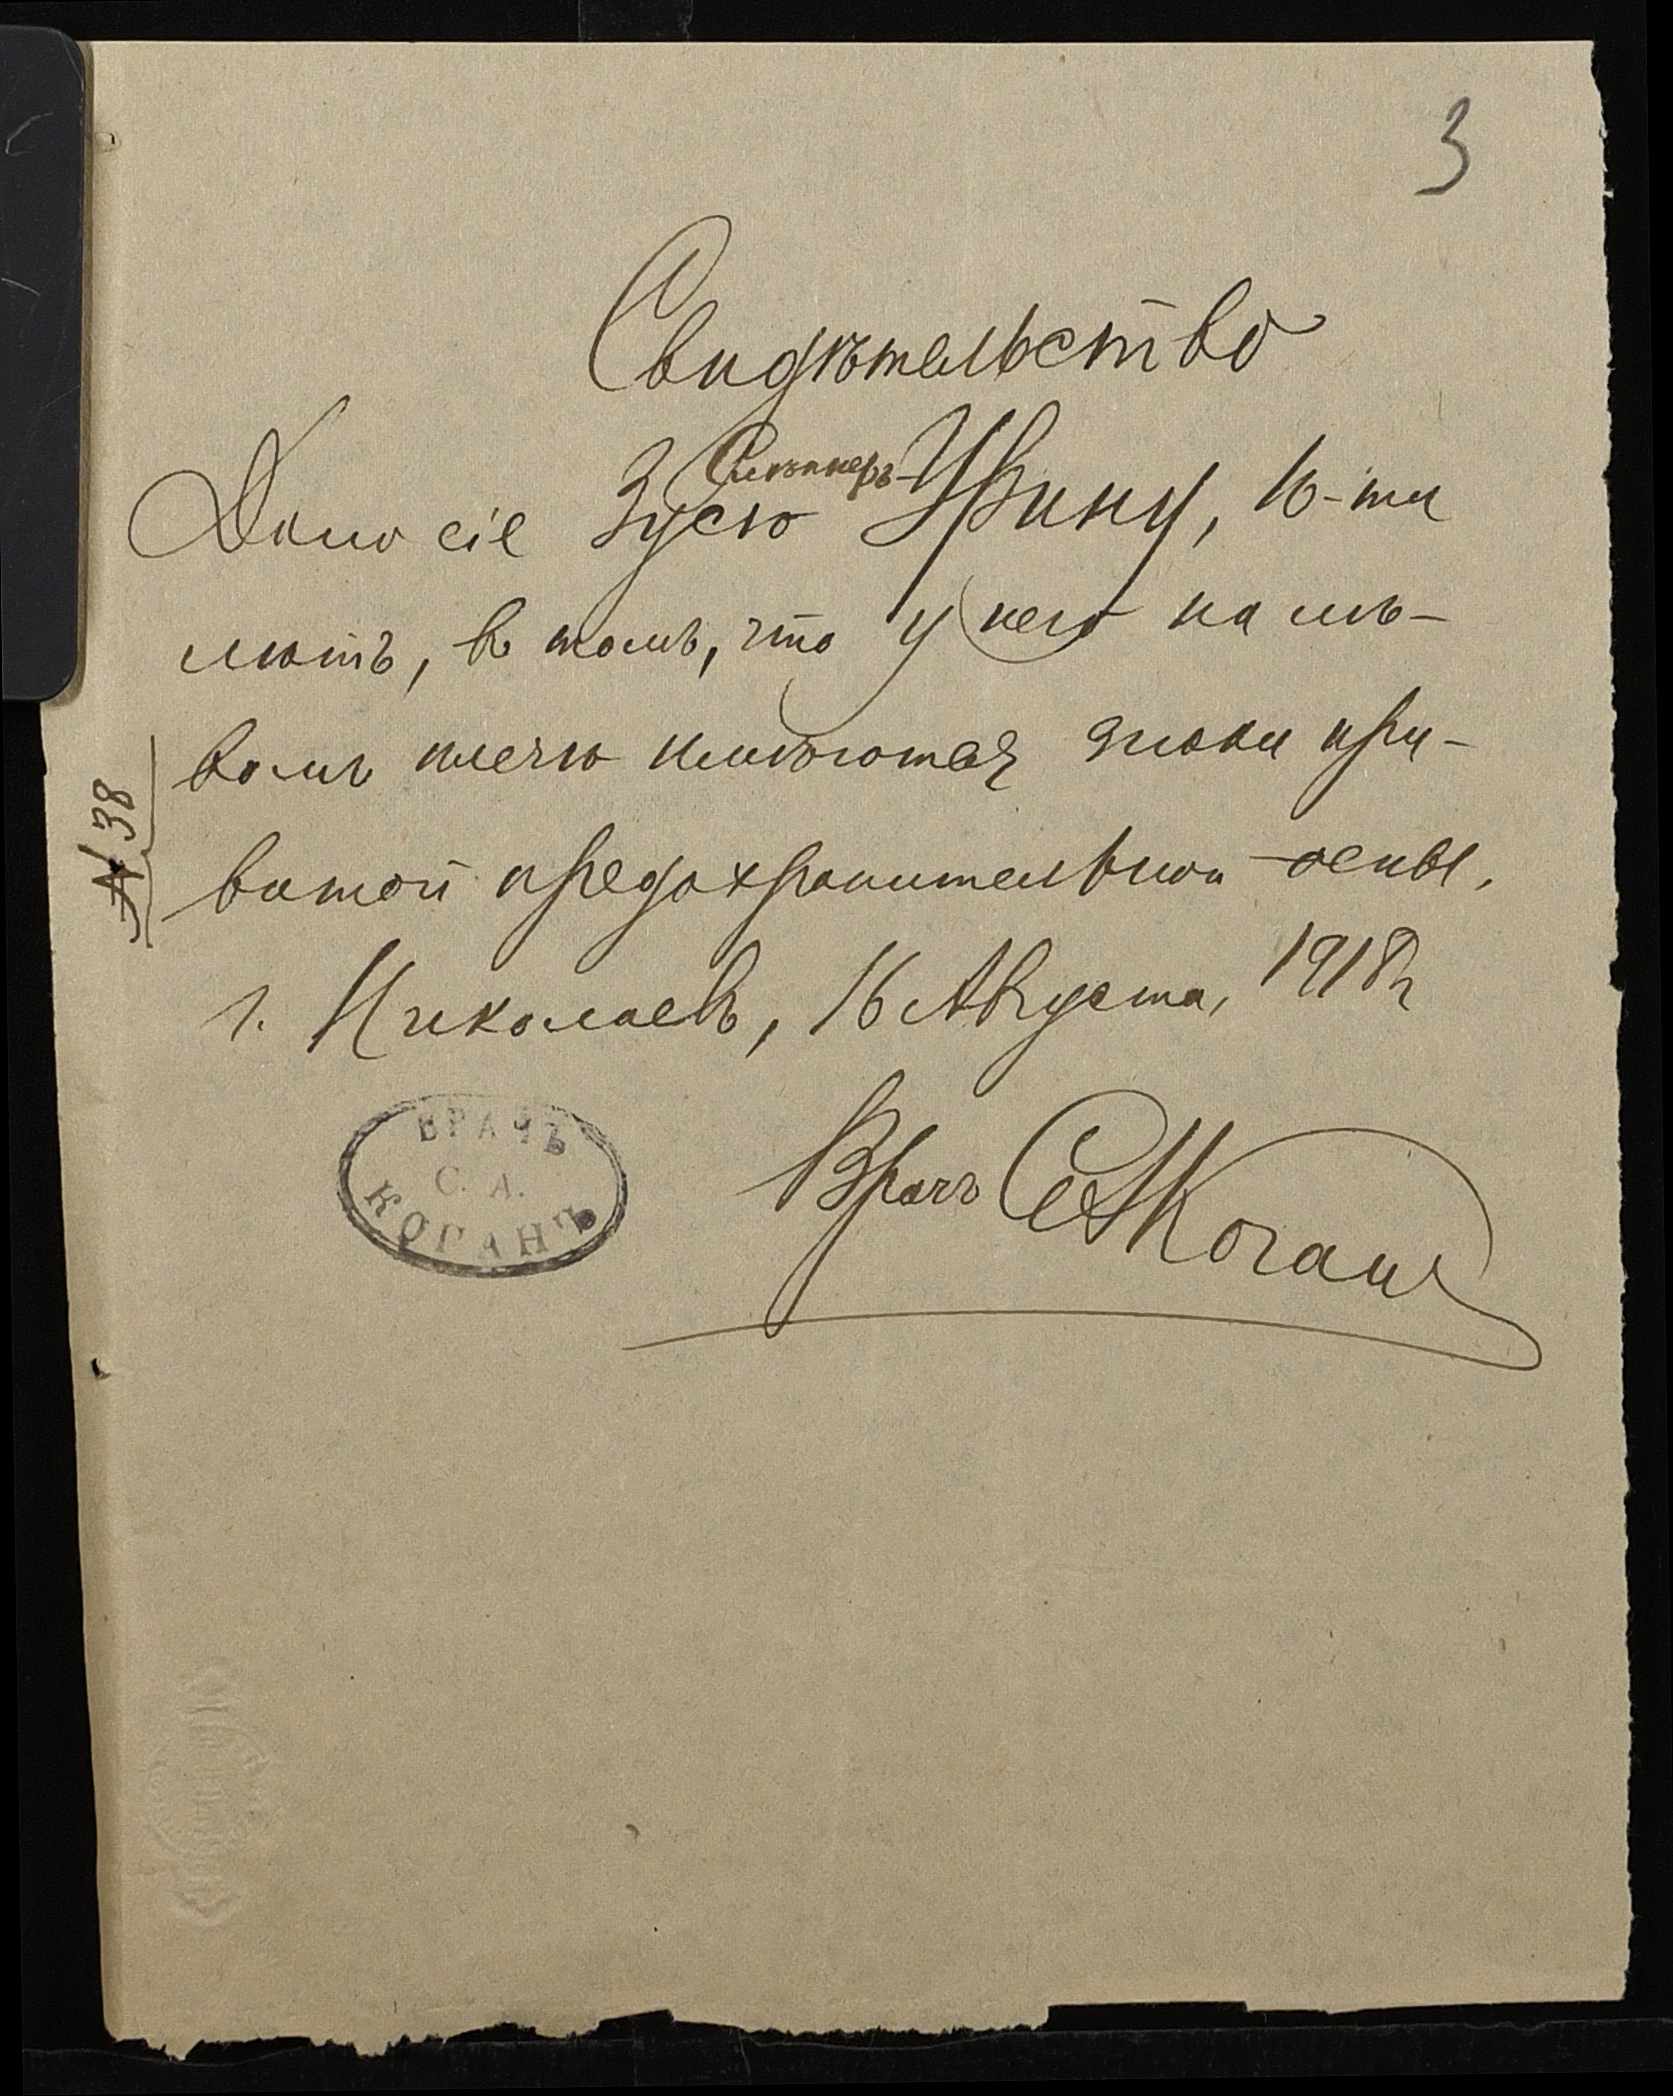 3
Свидѣтельство
Дано сіе Зусю Урину, 10-ти
лѣтъ, в томъ, что у него на лѣ-
вомъ плечѣ имѣются знаки при-
витой предохранительной оспы.
г. Николаевъ, 16 Августа, 1918 г
Врачъ СА Коганъ
ВРАЧЪ
С. А.
КОГАНЪ
№ 38